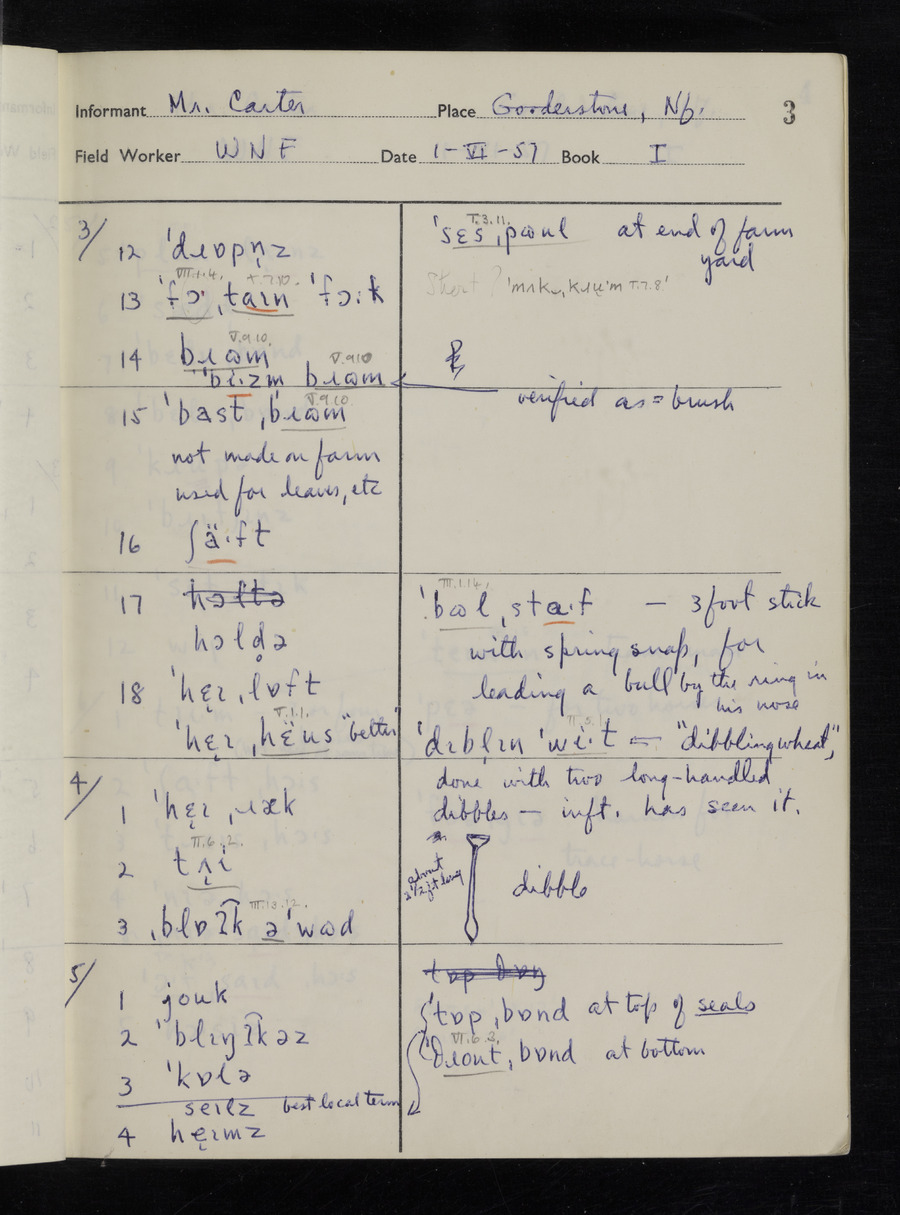 Informant Mr. Carter Place Gooderstone, Nf. 3
Field Worker WNF Date 1-VI-57 Book I
3/
12 ˈdɹɒpn̩z
VIII.1.4.
13 ˈfɔˑˌtaɪn ˈfɔːk
V.9.10.
14 bɹɷm
V.9.10
ˈbiːzm bɹɷm
V.9.10
15 ˈbastˌbɹɷm
not made on farm
used for leaves, etc
16 ʃäˑft
17 ~~həltə~~
həld̥ə
18 ˈhe̜ɪˌlɒft
V.1.1.
ˈhe̜ɪˌhëus "better"
4/
1 ˈhe̜ɪˌɹæk
II.6.2.
2 tɹi
III.13.12.
3 ˌblɒʔ͡k əˈwɷd
5/
1 jouk
2 ˈblɪŋʔ͡kəz
3 ˈkɒlə
seɪlz best local term
4 he̜ɪmz
T.3.11.
ˈsɛsˌpɷul at end of farm
yard
Short? T.7.8
verified as = brush
III.1.14.
ˈbɷlˌstaˑf — 3 foot stick
with spring snap, for
leading a bull by the ring in
his nose
II.5.1.
ˈdɪbl̩ɪn ˈwiˑt — "dibbling wheat",
done with two long-handled
dibbles — inft. has seen it.
about
2½ ft long
dibble
ˈtɒpˌbɒnd at top of seals
VI.6.3.
ˈðɹoutˌbɒnd at bottom